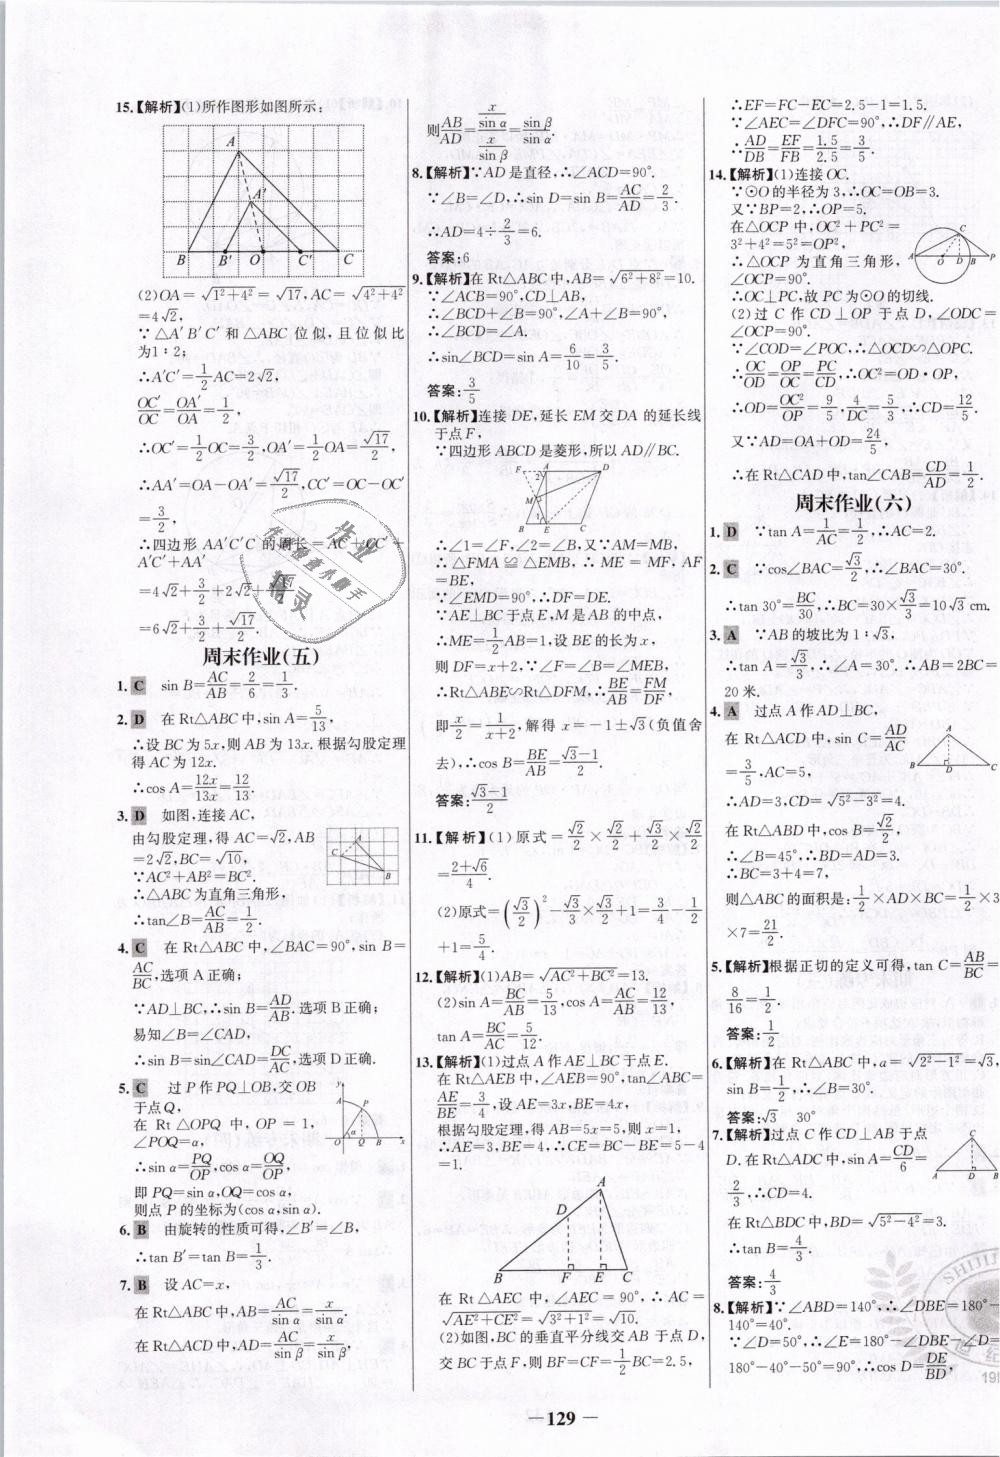 15.【解析】(1)所作图形如图所示:
A
A'
B B' O C' C
(2)OA=√(1²+4²)=√17,AC=√(4²+4²)
=4√2,
∵△A'B'C'和△ABC位似,且位似比
为1∶2;
∴A'C'=1/2AC=2√2,
OC'/OC=OA'/OA=1/2,
∴OC'=1/2OC=3/2,OA'=1/2OA=√17/2,
∴AA'=OA-OA'=√17/2,CC'=OC-OC'
=3/2,
∴四边形AA'C'C的周长=AC+CC'+
A'C'+AA'
=4√2+3/2+2√2+√17/2
=6√2+3/2+√17/2.
周末作业(五)
1. C sin B=AC/AB=2/6=1/3.
2. D 在Rt△ABC中,sin A=5/13,
∴设BC为5x,则AB为13x.根据勾股定理
得AC为12x.
∴cos A=12x/13x=12/13.
3. D 如图,连接AC,
由勾股定理,得AC=√2,AB
=2√2,BC=√10,
∵AC²+AB²=BC².
∴△ABC为直角三角形,
∴tan∠B=AC/AB=1/2.
A
C
B
4. C 在Rt△ABC中,∠BAC=90°,sin B=
AC/BC,选项A正确;
∵AD⊥BC,∴sin B=AD/AB.选项B正确;
易知∠B=∠CAD,
∴sin B=sin∠CAD=DC/AC,选项D正确.
5. C 过P作PQ⊥OB,交OB
于点Q,
在Rt△OPQ中,OP=1,
∠POQ=α,
∴sin α=PQ/OP,cos α=OQ/OP
即PQ=sin α,OQ=cos α,
则点P的坐标为(cos α,sin α).
y
P
α
O Q B x
6. B 由旋转的性质可得,∠B'=∠B,
∴tan B'=tan B=1/3.
7. B 设AC=x,
在Rt△ABC中,AB=AC/sin α=x/sin α.
在Rt△ACD中,AD=AC/sin β=x/sin β,
则AB/AD=(x/sin α)/(x/sin β)=sin β/sin α.
8.【解析】∵AD是直径,∴∠ACD=90°.
∵∠B=∠D,∴sin D=sin B=AC/AD=2/3.
∴AD=4÷2/3=6.
答案:6
9.【解析】在Rt△ABC中,AB=√(6²+8²)=10.
∵∠ACB=90°,CD⊥AB,
∴∠BCD+∠B=90°,∠A+∠B=90°,
∴∠BCD=∠A.
∴sin∠BCD=sin A=6/10=3/5.
答案:3/5
10.【解析】连接DE,延长EM交DA的延长线
于点F,
∵四边形ABCD是菱形,所以AD∥BC.
F A D
2
M
1
B E C
∴∠1=∠F,∠2=∠B,又∵AM=MB,
∴△FMA≌△EMB,∴ME=MF,AF
=BE,
∵∠EMD=90°.∴DF=DE.
∵AE⊥BC于点E,M是AB的中点,
∴ME=1/2AB=1,设BE的长为x,
则DF=x+2.∵∠F=∠B=∠MEB,
∴Rt△ABE∽Rt△DFM,∴BE/AB=FM/DF
即x/2=1/(x+2),解得x=-1±√3(负值舍
去),∴cos B=BE/AB=(√3-1)/2.
答案:(√3-1)/2
11.【解析】(1)原式=√2/2×√2/2+√3/2×√2/2
=(2+√6)/4.
(2)原式=(√3/2)²-√3/3×√3/2+1=3/4-1/2
+1=5/4.
12.【解析】(1)AB=√(AC²+BC²)=13.
(2)sin A=BC/AB=5/13,cos A=AC/AB=12/13,
tan A=BC/AC=5/12.
13.【解析】(1)过点A作AE⊥BC于点E.
在Rt△AEB中,∠AEB=90°,tan∠ABC=
AE/BE=3/4,设AE=3x,BE=4x,
根据勾股定理,得AB=5x=5,则x=1,
∴AE=3,BE=4,∴CE=BC-BE=5-4
=1.
A
D
B F E C
在Rt△AEC中,∠AEC=90°,∴AC=
√(AE²+CE²)=√(3²+1²)=√10.
(2)如图,BC的垂直平分线交AB于点D,
交BC于点F,则BF=CF=1/2BC=2.5,
∴EF=FC-EC=2.5-1=1.5.
∵∠AEC=∠DFC=90°,∴DF∥AE,
∴AD/DB=EF/FB=1.5/2.5=3/5.
14.【解析】(1)连接OC.
∵⊙O的半径为3,∴OC=OB=3.
又∵BP=2,∴OP=5.
在△OCP中,OC²+PC²=
3²+4²=5²=OP²,
∴△OCP为直角三角形,
∠OCP=90°.
∴OC⊥PC,故PC为⊙O的切线.
C
A O D B P
(2)过C作CD⊥OP于点D,∠ODC=
∠OCP=90°.
∵∠COD=∠POC,∴△OCD∽△OPC.
∴OC/OD=OP/OC=PC/CD,∴OC²=OD·OP,
∴OD=OC²/OP=9/5,4/DC=5/3,∴CD=12/5.
又∵AD=OA+OD=24/5,
∴在Rt△CAD中,tan∠CAB=CD/AD=1/2.
周末作业(六)
1. D ∵tan A=1/AC=1/2,∴AC=2.
2. C ∵cos∠BAC=√3/2,∴∠BAC=30°.
∴tan 30°=BC/30,∴BC=30×√3/3=10√3 cm.
3. A ∵AB的坡比为1∶√3,
∴tan A=√3/3,∴∠A=30°.∴AB=2BC=
20米.
4. A 过点A作AD⊥BC,
在Rt△ACD中,sin C=AD/AC
=3/5,AC=5,
∴AD=3,CD=√(5²-3²)=4.
A
B D C
在Rt△ABD中,cos B=√2/2,
∴∠B=45°,∴BD=AD=3.
∴BC=3+4=7,
则△ABC的面积是:1/2×AD×BC=1/2×3
×7=21/2.
5.【解析】根据正切的定义可得,tan C=AB/BC=
8/16=1/2.
答案:1/2
6.【解析】在Rt△ABC中,a=√(2²-1²)=√3,
sin B=1/2,∴∠B=30°.
答案:√3 30°
7.【解析】过点C作CD⊥AB于点
D.在Rt△ADC中,sin A=CD/6=
2/3,∴CD=4.
C
A D B
在Rt△BDC中,BD=√(5²-4²)=3.
∴tan B=4/3.
答案:4/3
8.【解析】∵∠ABD=140°,∴∠DBE=180°-
140°=40°.
∵∠D=50°,∴∠E=180°-∠DBE-∠D=
180°-40°-50°=90°,∴cos D=DE/BD,
— 129 —